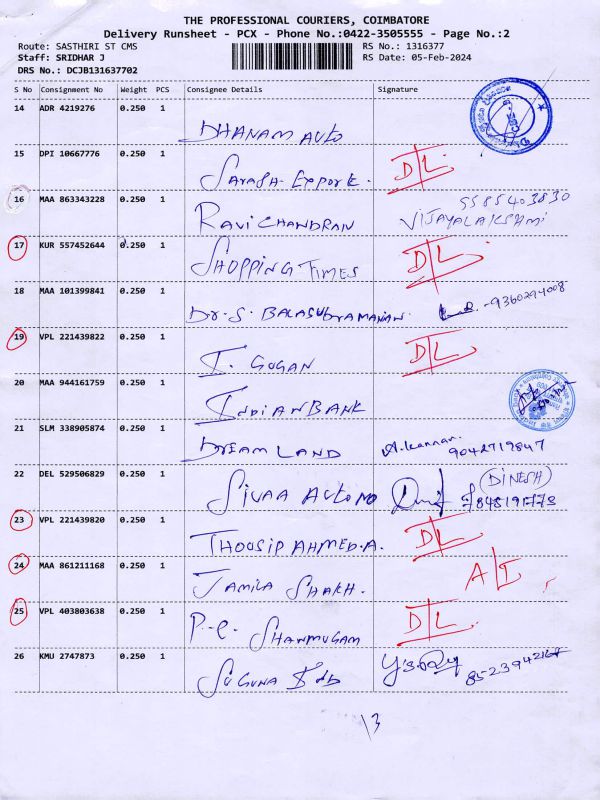 THE PROFESSIONAL COURIERS, COIMBATORE
Delivery Runsheet - PCX - Phone No.:0422-3505555 - Page No.:2
Route: SASTHIRI ST CMS RS No.: 1316377
Staff: SRIDHAR J RS Date: 05-Feb-2024
DRS No.: DCJB131637702
S No Consignment No Weight PCS Consignee Details Signature
14 ADR 4219276 0.250 1 DHANAM AUTO
15 DPI 10667776 0.250 1 D/L
16 MAA 863343228 0.250 1 RAVI CHANDRAN VIJAYALAKSHMI
17 KUR 557452644 0.250 1 SHOPPING TIMES D/L
18 MAA 101399841 0.250 1 Dr. S. BALASUBRAMANIAN -9360294008
19 VPL 221439822 0.250 1 T. GUGAN D/L
20 MAA 944161759 0.250 1 INDIAN BANK
21 SLM 338905874 0.250 1 DREAM LAND A.Kannan. 9042719847
22 DEL 529506829 0.250 1 SIVAA AUTO (DINESH)
23 VPL 221439820 0.250 1 THOOSIP AHMED.A. D/L
24 MAA 861211168 0.250 1 JAMILA SHAKH. A/I
25 VPL 403803638 0.250 1 P.C. SHANMUGAM D/L
26 KMU 2747873 0.250 1 SUGUNA
13